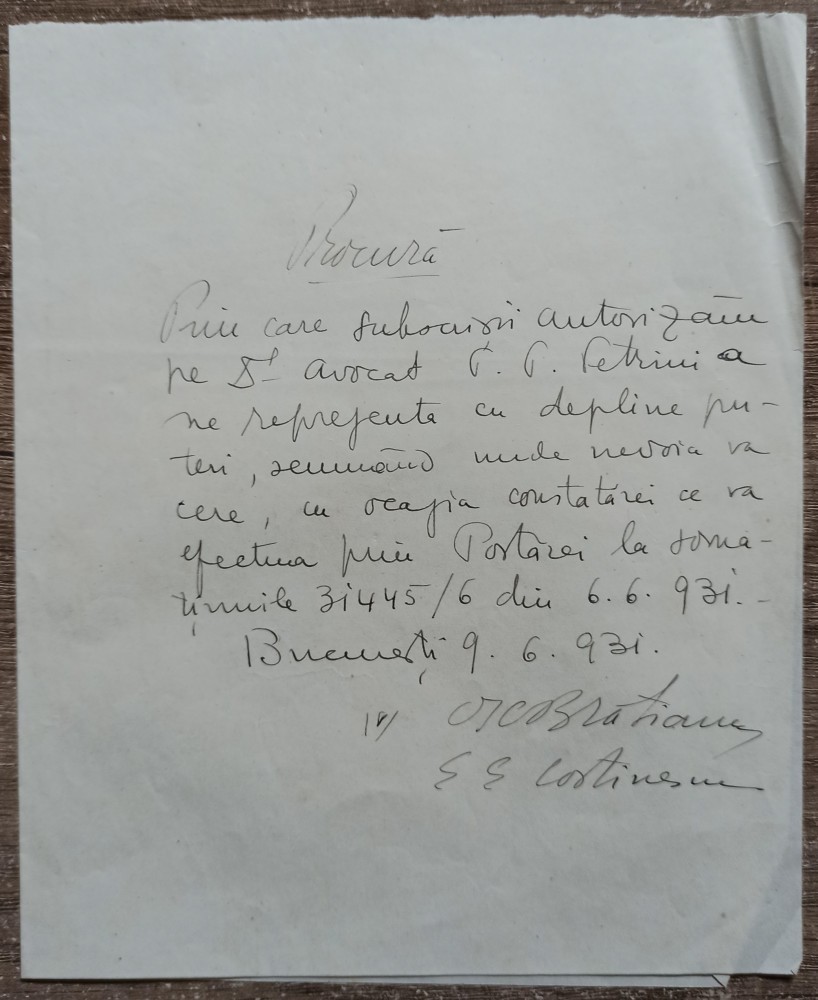 Procură
Prin care subscrișii autorizăm
pe Dl avocat P. P. Petrini a
ne reprezenta cu depline pu-
teri, semnând unde nevoia va
cere, cu ocazia constatărei ce va
efectua prin Portărei la soma-
țiunile 31445/6 din 6.6.931.-
București 9.6.931.
Brătianu
E E Costinescu